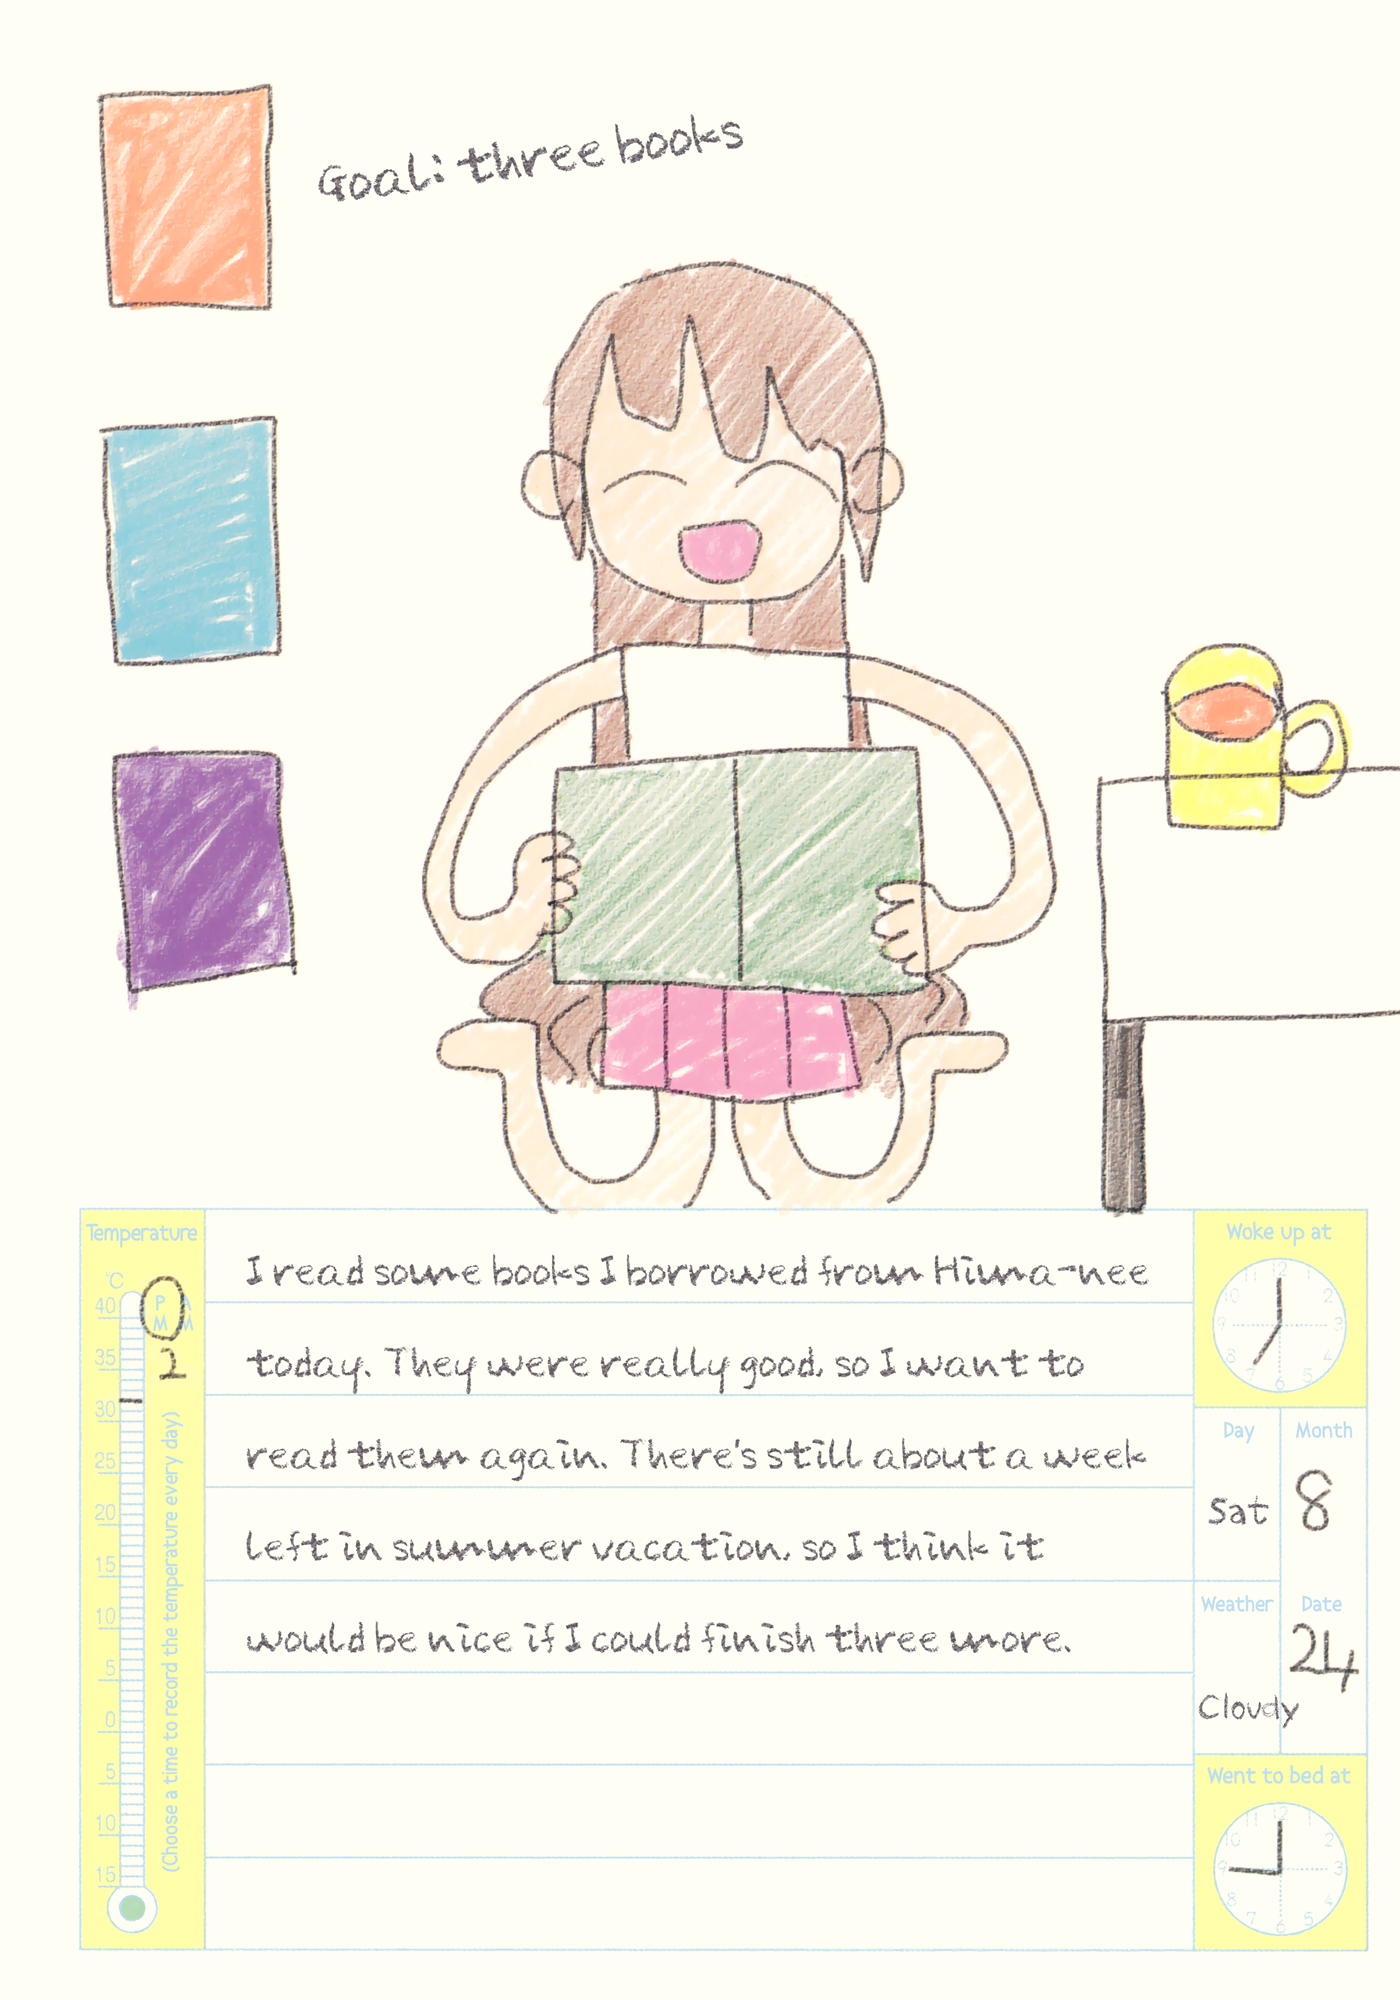 Goal: three books
Temperature
°C
P A
M M
2
40
35
30
25
20
15
10
5
0
5
10
15
(Choose a time to record the temperature every day)
I read some books I borrowed from Hima-nee
today. They were really good, so I want to
read them again. There's still about a week
left in summer vacation, so I think it
would be nice if I could finish three more.
Woke up at
12 1 2 3 4 5 6 7 8 9 10 11
Day
Sat
Month
8
Weather
Cloudy
Date
24
Went to bed at
12 1 2 3 4 5 6 7 8 9 10 11